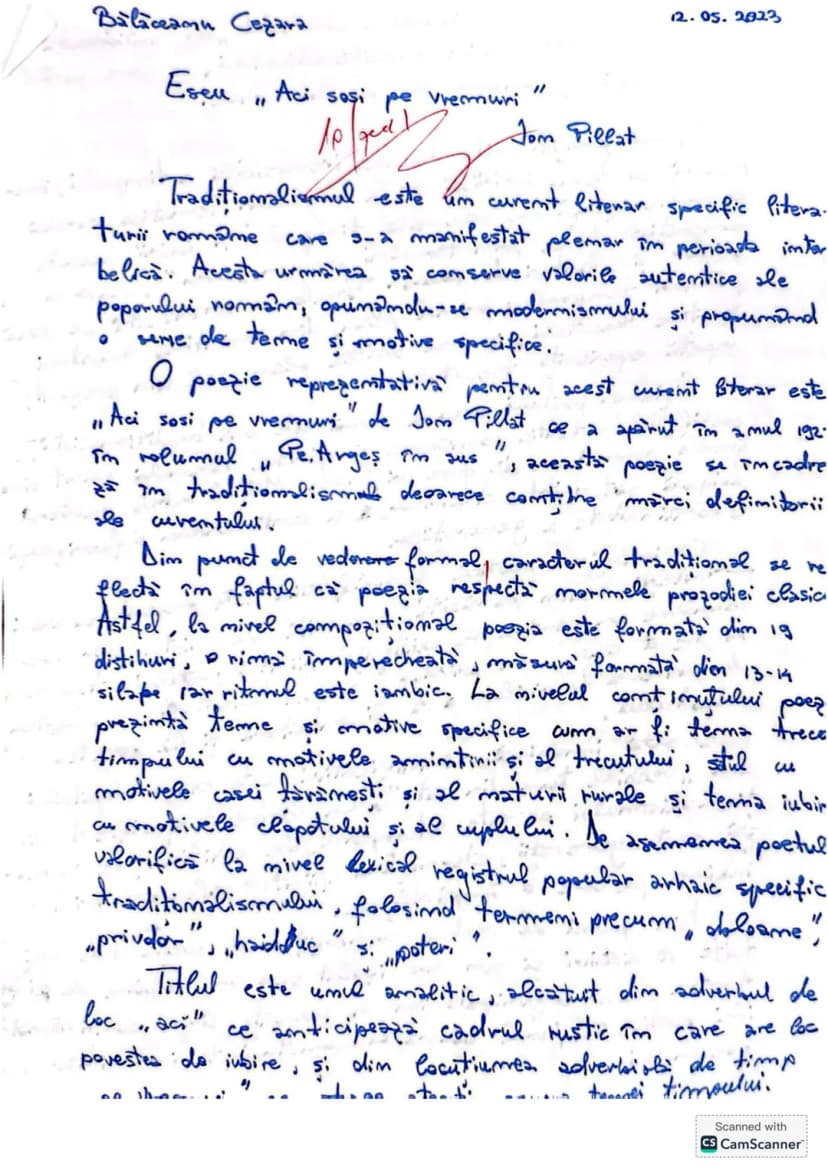 Bălăceanu Cezara
12.05.2023
Eseu „Aci sosi pe vremuri"
10/
Ion Pillat
Tradiționalismul este un curent literar specific litera-
turii române care s-a manifestat plenar în perioada inter
belică. Acesta urmărea să conserve valorile autentice ale
poporului român, opunându-se modernismului și propunând
o serie de teme și motive specifice
O poezie reprezentativă pentru acest curent literar este
„Aci sosi pe vremuri" de Ion Pillat ce a apărut în anul 192
în volumul „Pe Argeș în sus", această poezie se încadre
ză în tradiționalismul deoarece conține mărci definitorii
ale curentului.
Din punct de vedere formal, caracterul tradițional se re
flectă în faptul că poezia respectă normele prozodiei clasic
Astfel, la nivel compozițional poezia este formată din 19
distihuri, o rimă împerecheată, măsură formată din 13-14
silabe iar ritmul este iambic. La nivelul conținutului poez
prezintă teme și motive specifice cum ar fi tema trece
timpului cu motivele amintirii și al trecutului, satul cu
motivele casei țărănești și al naturii rurale și tema iubir
cu motivele clopotului și al cuplului. De asemenea poetul
valorifică la nivel lexical registrul popular arhaic specific
tradiționalismului, folosind termeni precum „obloane",
„pridvor", „haiduc" și „poteri".
Titlul este unul analitic, alcătuit din adverbul de
loc „aci" ce anticipează cadrul rustic în care are loc
povestea de iubire, și din locuțiunea adverbială de timp
timpului.
Scanned with
CS CamScanner